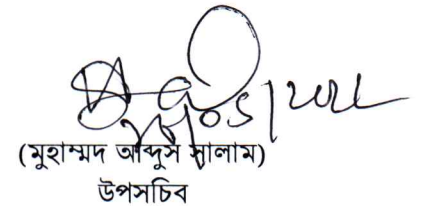 (মুহাম্মদ আব্দুস সালাম)
উপসচিব